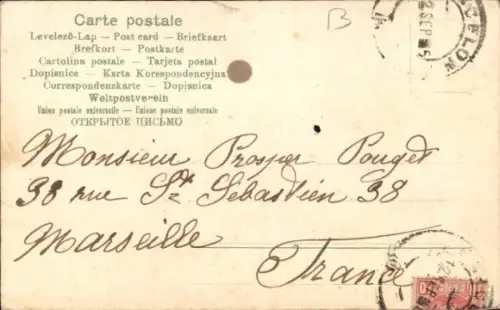 Carte postale
Levelező-Lap — Post card — Briefkaart
Brefkort — Postkarte
Cartolina postale — Tarjeta postal
Dopisnice — Karta Korespondencyjna
Correspondenzkarte — Dopisnica
Weltpostverein
Union postale universelle — Unione postale universale
ОТКРЫТОЕ ПИСЬМО
B
2 SEP 05
CELON
Monsieur Prosper Pouget
38 rue St Sébastien 38
Marseille
France